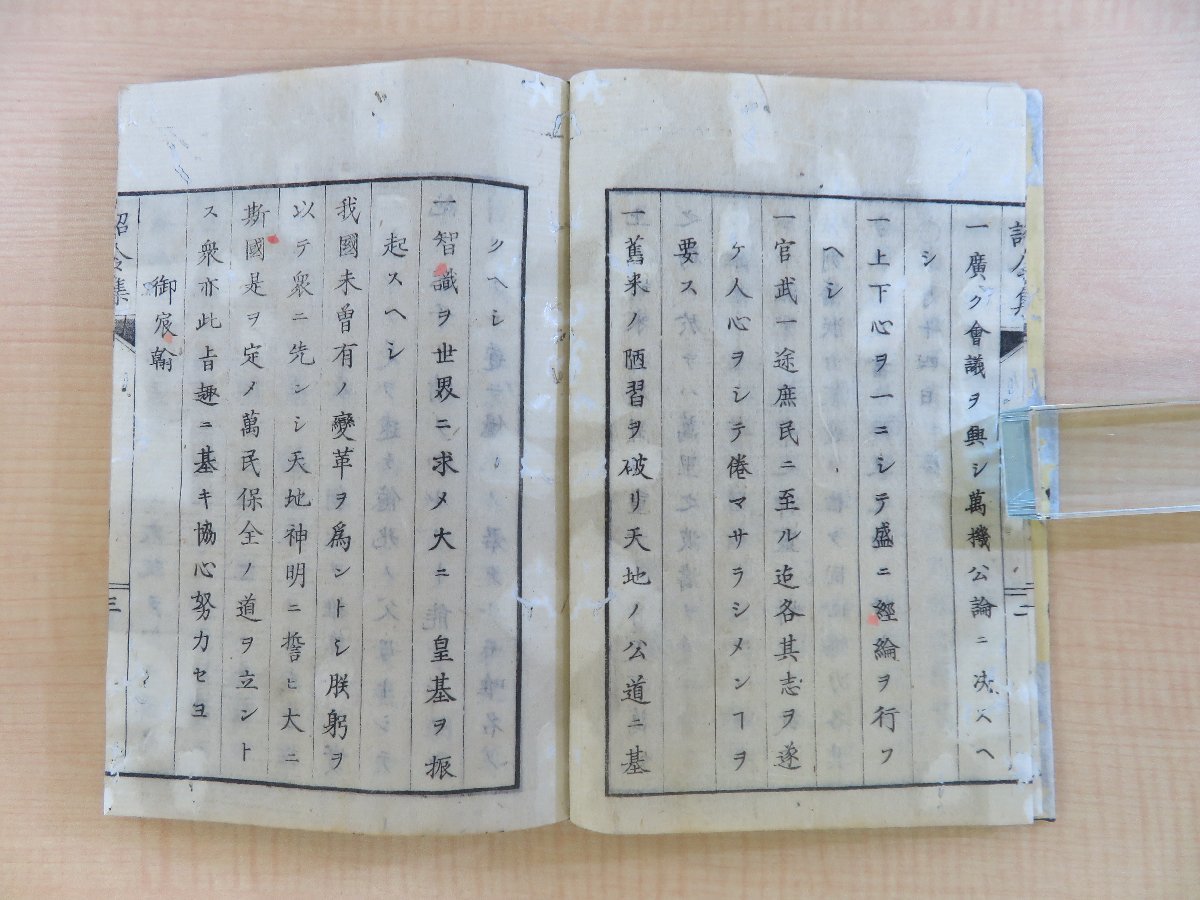 一廣ク會議ヲ興シ萬機公論ニ决スヘ
シ
一上下心ヲ一ニシテ盛ニ經綸ヲ行フ
ヘシ
一官武一途庶民ニ至ル迄各其志ヲ遂
ケ人心ヲシテ倦マサラシメンヿヲ
要ス
一舊来ノ陋習ヲ破リ天地ノ公道ニ基
二
クヘシ
一智識ヲ世界ニ求メ大ニ皇基ヲ振
起スヘシ
我國未曾有ノ變革ヲ爲ントシ朕躬ヲ
以テ衆ニ先ンシ天地神明ニ誓ヒ大ニ
斯國是ヲ定メ萬民保全ノ道ヲ立ント
ス衆亦此旨趣ニ基キ協心努力セヨ
御宸翰
詔令集
三